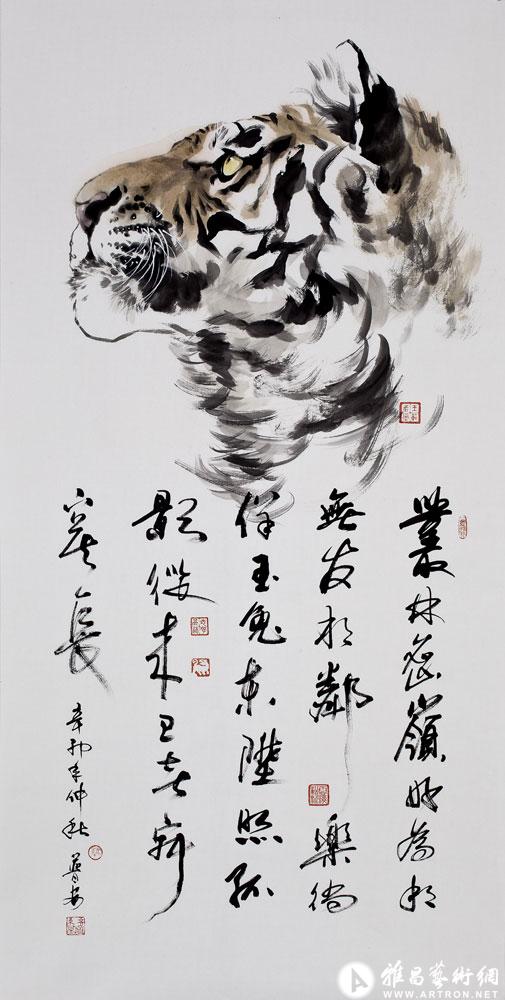 叢林嶺好為鄉
無友相鄰樂徜
徉玉兔東陞照孤
影從來王者寂
寞長
辛卯年仲秋
雅昌藝術網
WWW.ARTRON.NET